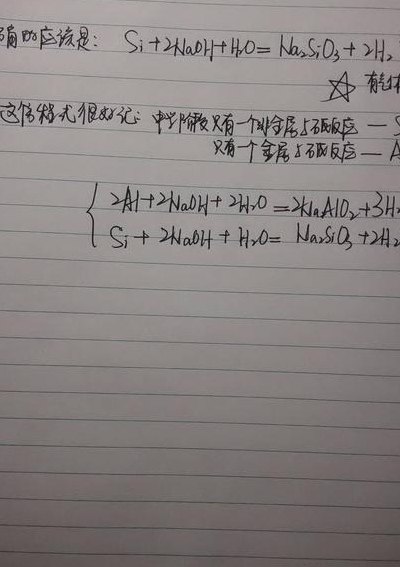 应该是: Si+2NaOH+H₂O=Na₂SiO₃+2H₂
☆ 有
这个 很好记: 中学阶段只有一个非金属与碱反应 — S
只有一个金属与碱反应 — A
2Al+2NaOH+2H₂O=2NaAlO₂+3H₂
Si+2NaOH+H₂O=Na₂SiO₃+2H₂